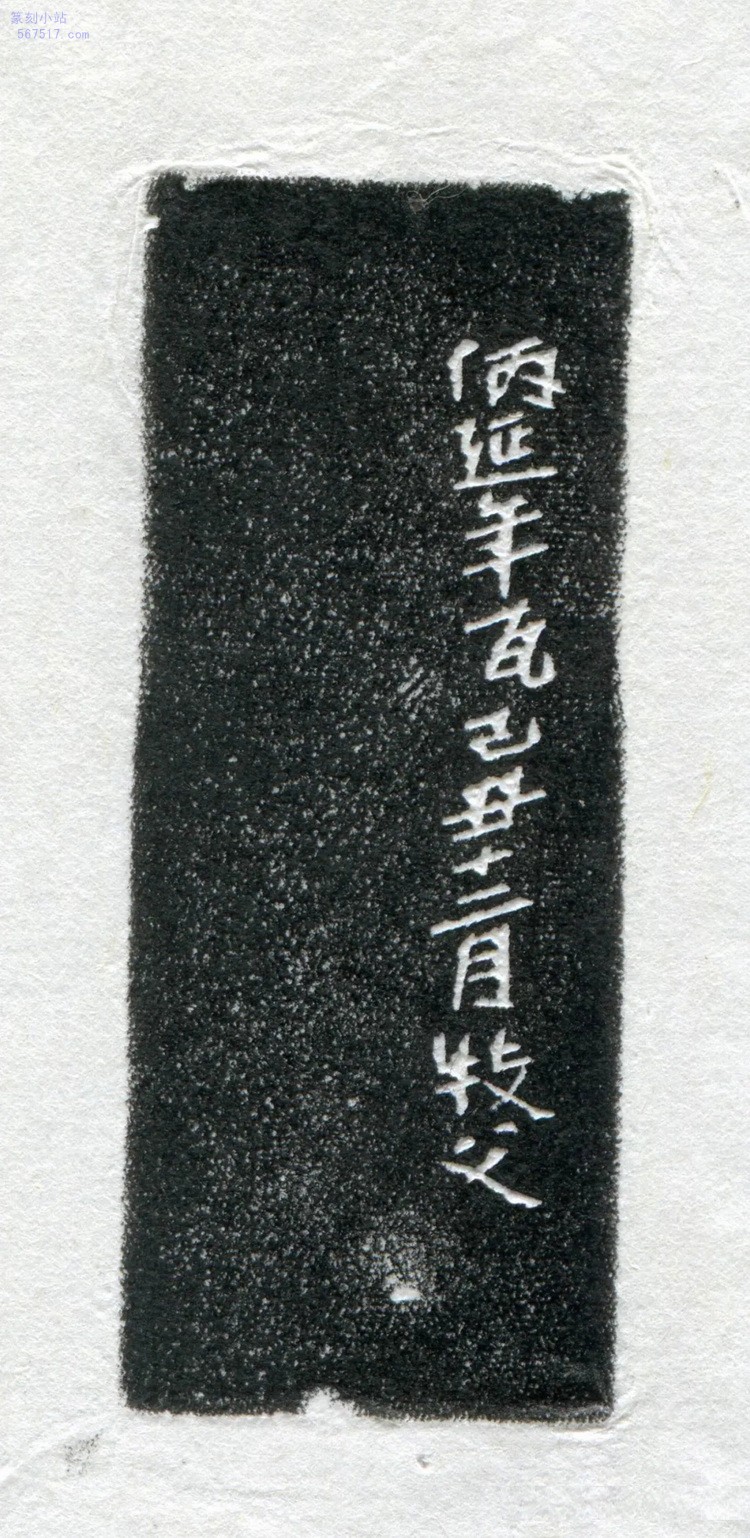 篆刻小站
567517.com
㑂延年瓦己丑十二月牧父